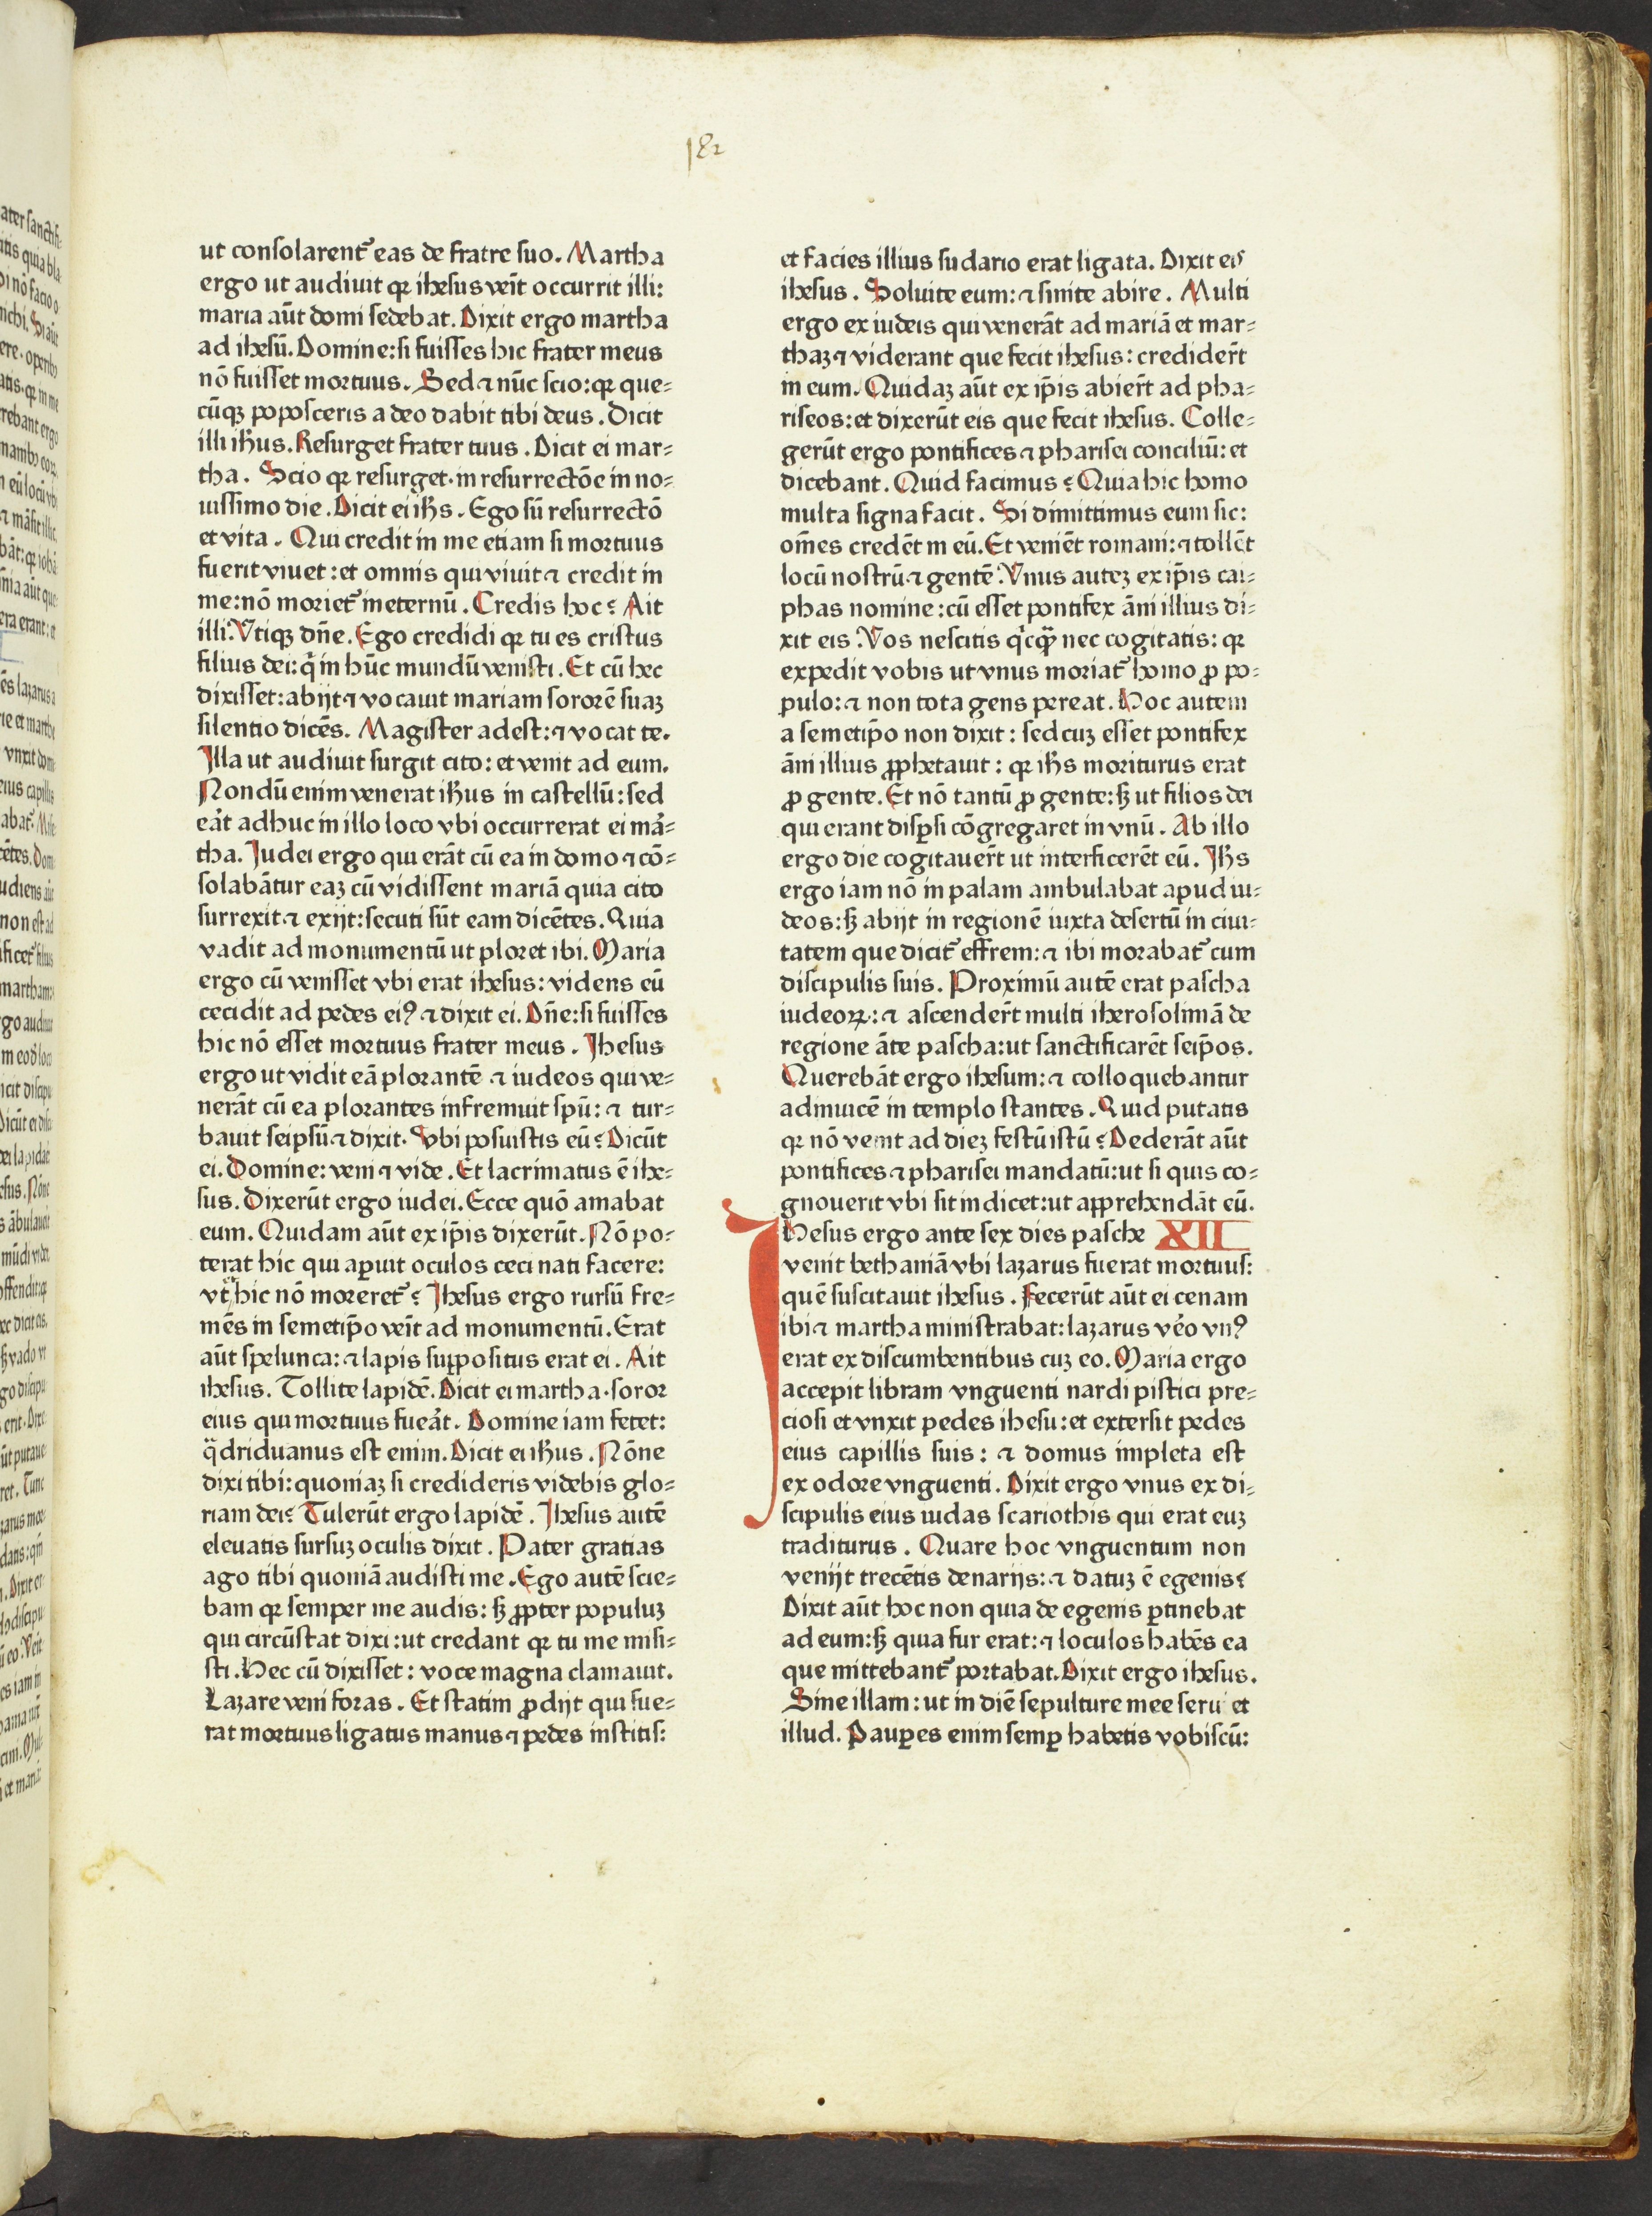 182
ut consolarent᷑ eas de fratre suo. Martha
ergo ut audiuit qꝛ ihesus veīt occurrit illi:
maria aūt domi sedebat. Dixit ergo martha
ad ihesū. Domine: si fuisses hic frater meus
nō fuisset mortuus. Sed ⁊ nūc scio: qꝛ que⸗
cūqꝫ poposceris a deo dabit tibi deus. Dicit
illi ihūs. Resurget frater tuus. Dicit ei mar⸗
tha. Scio qꝛ resurget in resurrectōe in no⸗
uissimo die. Dicit ei ihs̄. Ego sū resurrectō
et vita. Qui credit in me etiam si mortuus
fuerit viuet: et omnis qui viuit ⁊ credit in
me: nō moriet᷑ in eternū. Credis hoc? Ait
illi. Vtiqꝫ dn̄e. Ego credidi qꝛ tu es cristus
filius dei: q̄ in hūc mundū venisti. Et cū hec
dixisset: abijt ⁊ vocauit mariam sororē suaꝫ
silentio dicēs. Magister adest: ⁊ vocat te.
Illa ut audiuit surgit cito: et venit ad eum.
Nondū enim venerat ihūs in castellū: sed
eāt adhuc in illo loco vbi occurrerat ei mā⸗
tha. Judei ergo qui erāt cū ea in domo ⁊ cō⸗
solabātur eaꝫ cū vidissent mariā quia cito
surrexit ⁊ exijt: secuti sūt eam dicētes. Quia
vadit ad monumentū ut ploret ibi. Maria
ergo cū venisset vbi erat ihesus: videns eū
cecidit ad pedes eiꝰ ⁊ dixit ei. Dn̄e: si fuisses
hic nō esset mortuus frater meus. Jhesus
ergo ut vidit eā plorantē ⁊ iudeos qui ve⸗
nerāt cū ea plorantes infremuit spū: ⁊ tur⸗
bauit seipsū ⁊ dixit. Vbi posuistis eū? Dicūt
ei. Domine: veni ⁊ vide. Et lacrimatus ē ihe⸗
sus. Dixerūt ergo iudei. Ecce quō amabat
eum. Quidam aūt ex ip̄is dixerūt. Nō po⸗
terat hic qui aꝑuit oculos ceci nati facere:
vt hic nō moreret᷑? Jhesus ergo rursū fre⸗
mēs in semetip̄o veīt ad monumentū. Erat
aūt spelunca: ⁊ lapis suꝑpositus erat ei. Ait
ihesus. Tollite lapidē. Dicit ei martha soror
eius qui mortuus fueāt. Domine iam fetet:
q̈driduanus est enim. Dicit ei ihūs. Nōne
dixi tibi: quoniaꝫ si credideris videbis glo⸗
riam dei? Tulerūt ergo lapidē. Jhesus autē
eleuatis sursuꝫ oculis dixit. Pater gratias
ago tibi quoniā audisti me. Ego autē scie⸗
bam qꝛ semper me audis: sꝫ ꝓpter populuꝫ
qui circūstat dixi: ut credant qꝛ tu me misi⸗
sti. Hec cū dixisset: voce magna clamauit.
Lazare veni foras. Et statim ꝓdijt qui fue⸗
rat mortuus ligatus manus ⁊ pedes institis:
et facies illius sudario erat ligata. Dixit eis
ihesus. Soluite eum: ⁊ sinite abire. Multi
ergo ex iudeis qui venerāt ad mariā et mar⸗
thaꝫ ⁊ viderant que fecit ihesus: credider̄t
in eum. Quidaꝫ aūt ex ip̄is abier̄t ad pha⸗
riseos: et dixerūt eis que fecit ihesus. Colle⸗
gerūt ergo pontifices ⁊ pharisei conciliū: et
dicebant. Quid facimus? Quia hic homo
multa signa facit. Si dimittimus eum sic:
om̄es credēt in eū. Et veniēt romani: ⁊ tollēt
locū nostrū ⁊ gentē. Vnus auteꝫ ex ip̄is cai⸗
phas nomine: cū esset pontifex āni illius di⸗
xit eis. Vos nescitis q̇cq̄ nec cogitatis: qꝛ
expedit vobis ut vnus moriat᷑ homo ꝓ po⸗
pulo: ⁊ non tota gens pereat. Hoc autem
a semetip̄o non dixit: sed cuꝫ esset pontifex
āni illius ꝓphetauit: qꝛ ihs̄ moriturus erat
ꝓ gente. Et nō tantū ꝓ gente: sꝫ ut filios dei
qui erant disꝑsi cōgregaret in vnū. Ab illo
ergo die cogitauer̄t ut interficerēt eū. Jhs̄
ergo iam nō in palam ambulabat apud iu⸗
deos: sꝫ abijt in regionē iuxta desertū in ciui⸗
tatem que dicit᷑ effrem: ⁊ ibi morabat᷑ cum
discipulis suis. Proximū autē erat pascha
iudeoꝝ: ⁊ ascender̄t multi iherosolimā de
regione āte pascha: ut sanctificarēt seip̄os.
Querebāt ergo ihesum: ⁊ colloquebantur
adinuicē in templo stantes. Quid putatis
qꝛ nō venit ad dieꝫ festū istū? Dederāt aūt
pontifices ⁊ pharisei mandatū: ut si quis co⸗
gnouerit vbi sit indicet: ut apprehendāt eū.
Jhesus ergo ante sex dies pasche XII
venit bethaniā vbi lazarus fuerat mortuus:
quē suscitauit ihesus. Fecerūt aūt ei cenam
ibi ⁊ martha ministrabat: lazarus vēo vnꝰ
erat ex discumbentibus cuꝫ eo. Maria ergo
accepit libram vnguenti nardi pistici pre⸗
ciosi et vnxit pedes ihesu: et extersit pedes
eius capillis suis: ⁊ domus impleta est
ex odore vnguenti. Dixit ergo vnus ex di⸗
scipulis eius iudas scariothis qui erat euꝫ
traditurus. Quare hoc vnguentum non
venijt trecētis denarijs: ⁊ datuꝫ ē egenis?
Dixit aūt hoc non quia de egenis ꝑtinebat
ad eum: sꝫ quia fur erat: ⁊ loculos habēs ea
que mittebant᷑ portabat. Dixit ergo ihesus.
Sine illam: ut in diē sepulture mee seru et
illud. Pauꝑes enim semꝑ habetis vobiscū: